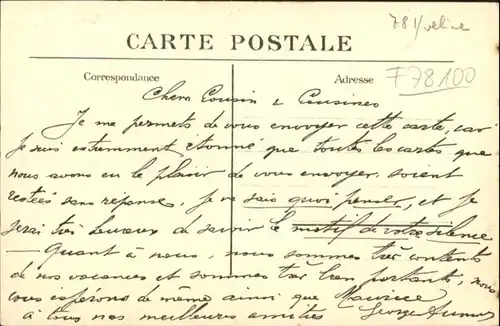 78 Yveline
CARTE POSTALE
Correspondance
Adresse
F78100
Chers Cousin & Cousines
Je me permets de vous envoyer cette carte, car
je suis extremment étonné que toutes les cartes que
nous avons eu le plaisir de vous envoyer, soient
restées sans réponses, je ne sais quoi penser, et je
serai très heureux de savoir le motif de votre silence
— Quant à nous, nous sommes très contents
de nos vacances et sommes très bien portants, nous
vous espérons de même ainsi que Maurice
à tous nos meilleures amitiés George